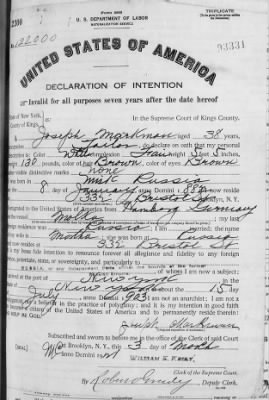 Form 2203
TRIPLICATE
U. S. DEPARTMENT OF LABOR
NATURALIZATION SERVICE
No. 122000
93331
UNITED STATES OF AMERICA
DECLARATION OF INTENTION
Invalid for all purposes seven years after the date hereof
State of New York,
County of Kings,
In the Supreme Court of Kings County.
I, Joseph Markman, aged 38 years,
occupation Tailor, do declare on oath that my personal
description is: Color White, complexion Fair, height 5 feet 5 inches,
weight 130 pounds, color of hair Brown, color of eyes Brown
other visible distinctive marks none
I was born in Minsk Russia
on the 8 day of January, anno Domini 1882; I now reside
at 332 Bristol St, Brooklyn, N.Y.
I emigrated to the United States of America from Hamburg Germany
on the vessel Moltke; my last
foreign residence was Russia; I am married; the name
of my wife is; she was born at Russia
and now resides at 332 Bristol St
It is my bona fide intention to renounce forever all allegiance and fidelity to any foreign
prince, potentate, state, or sovereignty, and particularly to
RUSSIA, of whom I am now a subject;
I arrived at the port of New York, in the
State of New York, on or about the 15 day
of July, anno Domini 1903; I am not an anarchist; I am not a
polygamist nor a believer in the practice of polygamy; and it is my intention in good faith
to become a citizen of the United States of America and to permanently reside therein:
SO HELP ME GOD.
Joseph Markman
Subscribed and sworn to before me in the office of the Clerk of said Court
[SEAL] at Brooklyn, N.Y., this 3 day of
anno Domini
WILLIAM E. KELLY,
Clerk of the Supreme Court.
By, Deputy Clerk.